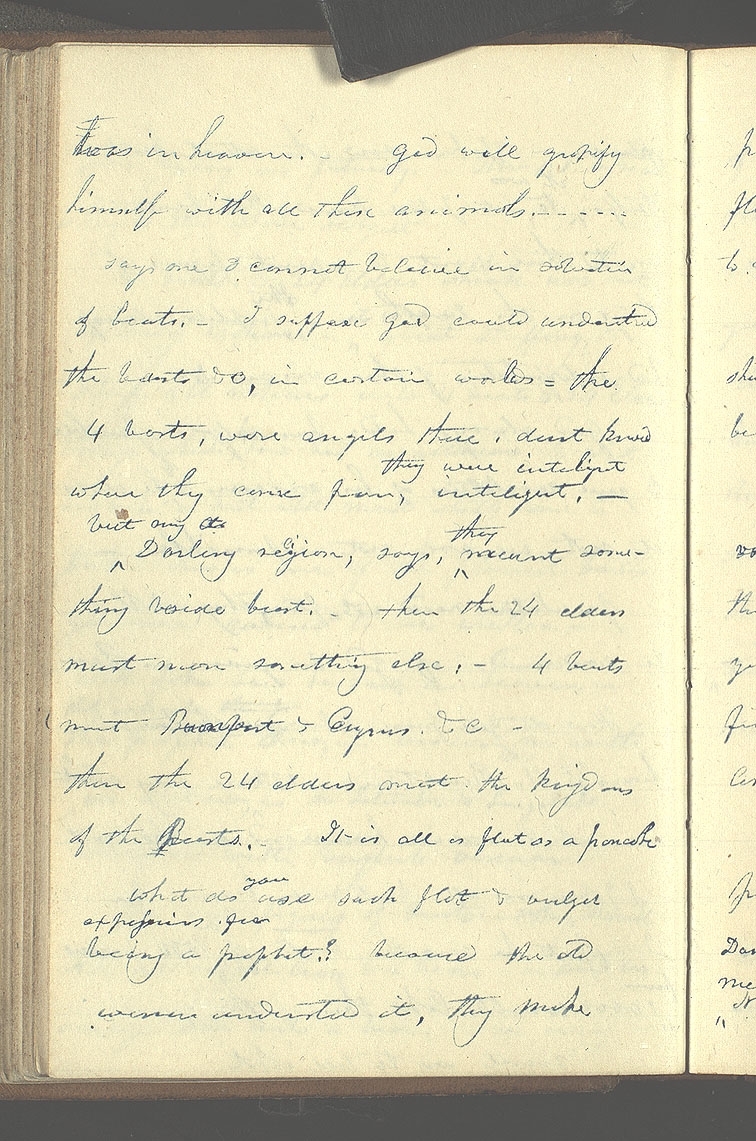 I was in heaven. - God will gratify
himself with all these animals. - - - - -
says one I cannot beleive in salvatin
of beats. - I suppose God could understand
the beasts &c, in certain worlds = the
4 beasts, were angels there, i dont know
they were inteligent
where they came from, inteligent. -
but my
they
Darling religion, says, meant some-
thing beside beast. - then the 24 elders
must mean something else. - 4 beasts
ment Bonapart & Cyrus. &c -
then the 24 elders ment the kingdoms
of the Beasts. - It is all as flat as a pancake
you
what do use such flat & vulger
expressins for
being a prophet.? because the old
women understand it, they make
p
fl
to
sh
be
th
y
fi
p
Da
me